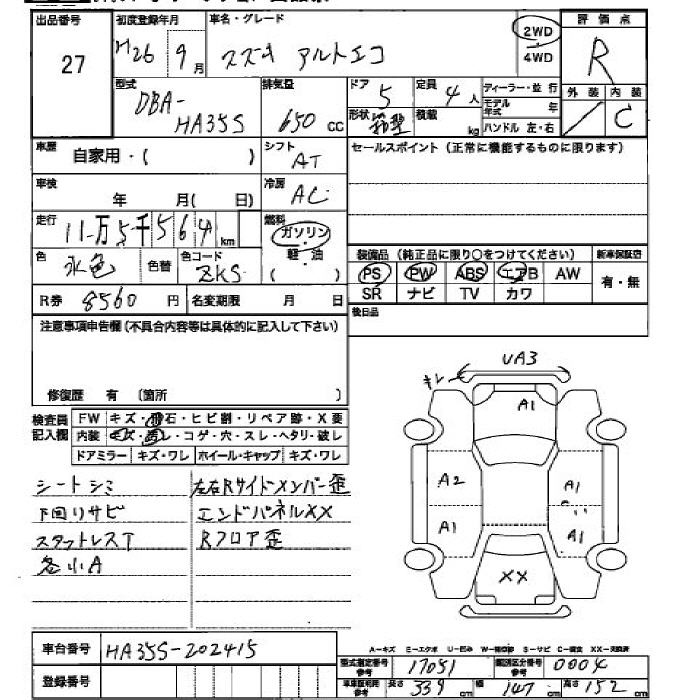 出品番号 初度登録年月 車名・グレード 評価点
27 H26 9月 スズキ アルトエコ 2WD R
4WD
型式 排気量 ドア 定員 ディーラー・並行 外装 内装
DBA- 5 4人 モデル年式 年 C
HA35S 650cc 形状 箱型 積載 kg ハンドル 左・右
車歴 自家用・( ) シフト AT セールスポイント(正常に機能するものに限ります)
車検 年 月( 日) 冷房 AC
走行 11万5千564km 燃料 ガソリン・
軽・油
( )
色 水色 色替 色コード ZKS 装備品(純正品に限り○をつけてください) 新車保証書
PS PW ABS エアB AW 有・無
R券 8560円 名変期限 月 日 SR ナビ TV カワ
注意事項申告欄(不具合内容等は具体的に記入して下さい) 後日品
修復歴 有 (箇所 )
検査員 FW キズ・飛石・ヒビ割・リペア跡・X要
記入欄 内装 キズ・汚レ・コゲ・穴・スレ・ヘタリ・破レ
ドアミラー キズ・ワレ ホイール・キャップ キズ・ワレ
シートシミ 左右Rサイドメンバー歪
下回リサビ エンドパネルXX
スタットレスT Rフロア歪
各小A
UA3
キレ
A1
A2 A1
A1 A1
XX
A-キズ E-エクボ U-凹み S-サビ C-腐食 XX-交換済
車台番号 HA35S-202415
登録番号
型式指定番号 参考 17051 類別区分番号 参考 0004
車車証明用 参考 長さ 339cm 幅 147cm 高さ 152cm